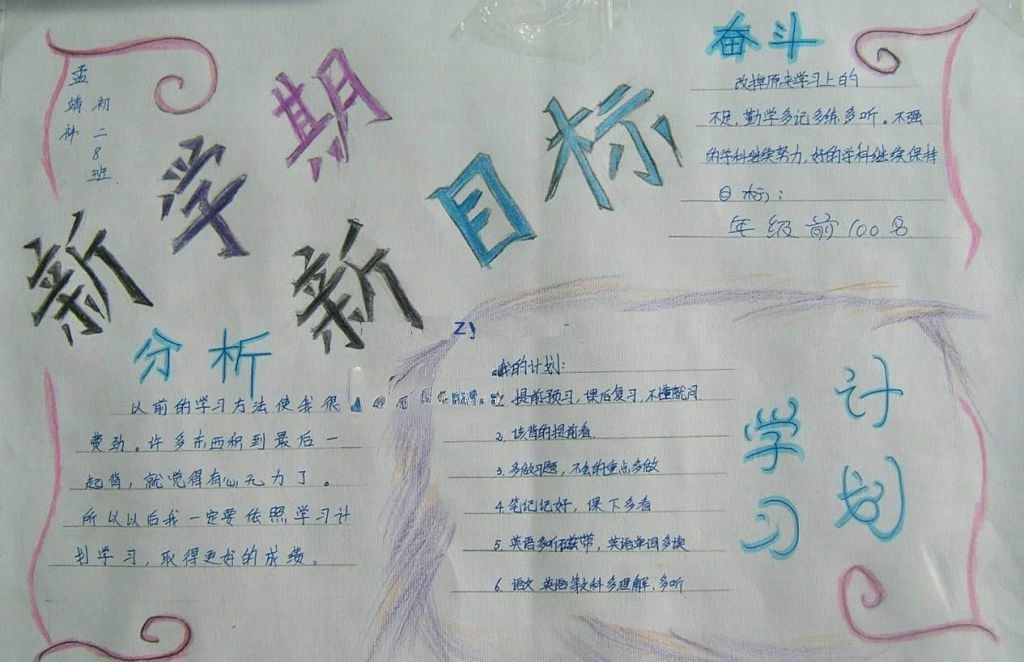 孟
靖
初二8班
新学期
新目标
奋斗
改掉原来学习上的
不足,勤学多记多练多听。不强
的学科继续努力,好的学科继续保持
目标:
年级前100名
分析
以前的学习方法使我很
费劲。许多东西积到最后一
起背,就觉得有心无力了。
所以以后我一定要依照学习计
划学习,取得更好的成绩。
ZJ
我的计划:
1. 提前预习,课后复习,不懂就问
2. 该背的提前看
3. 多做习题,不会的重点多做
4. 笔记记好,课下多看
5. 英语多听磁带,英语单词多读
6. 语文 英语等文科多理解、多听
学习
计划